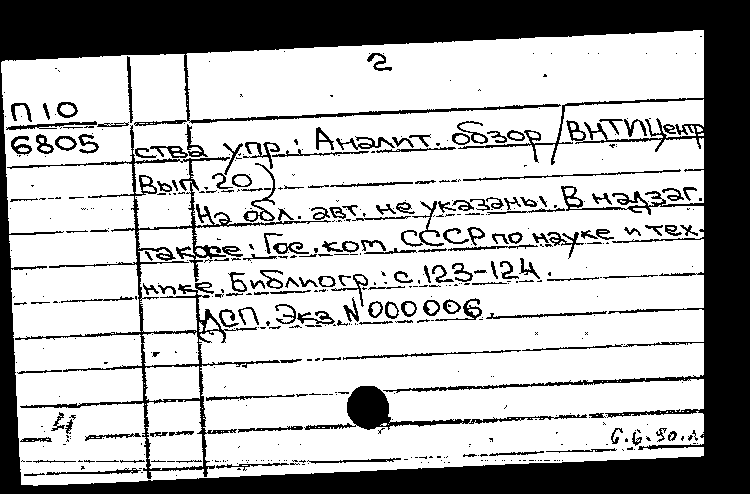 2
П10
6805
ства упр.: Аналит. обзор / ВНТИЦентр
Вып. 20)
На обл. авт. не указаны. В надзаг.
также: Гос. ком. СССР по науке и тех-
нике. Библиогр.: с. 123-124.
ДСП. Экз. № 000006.
4
6.6.90.